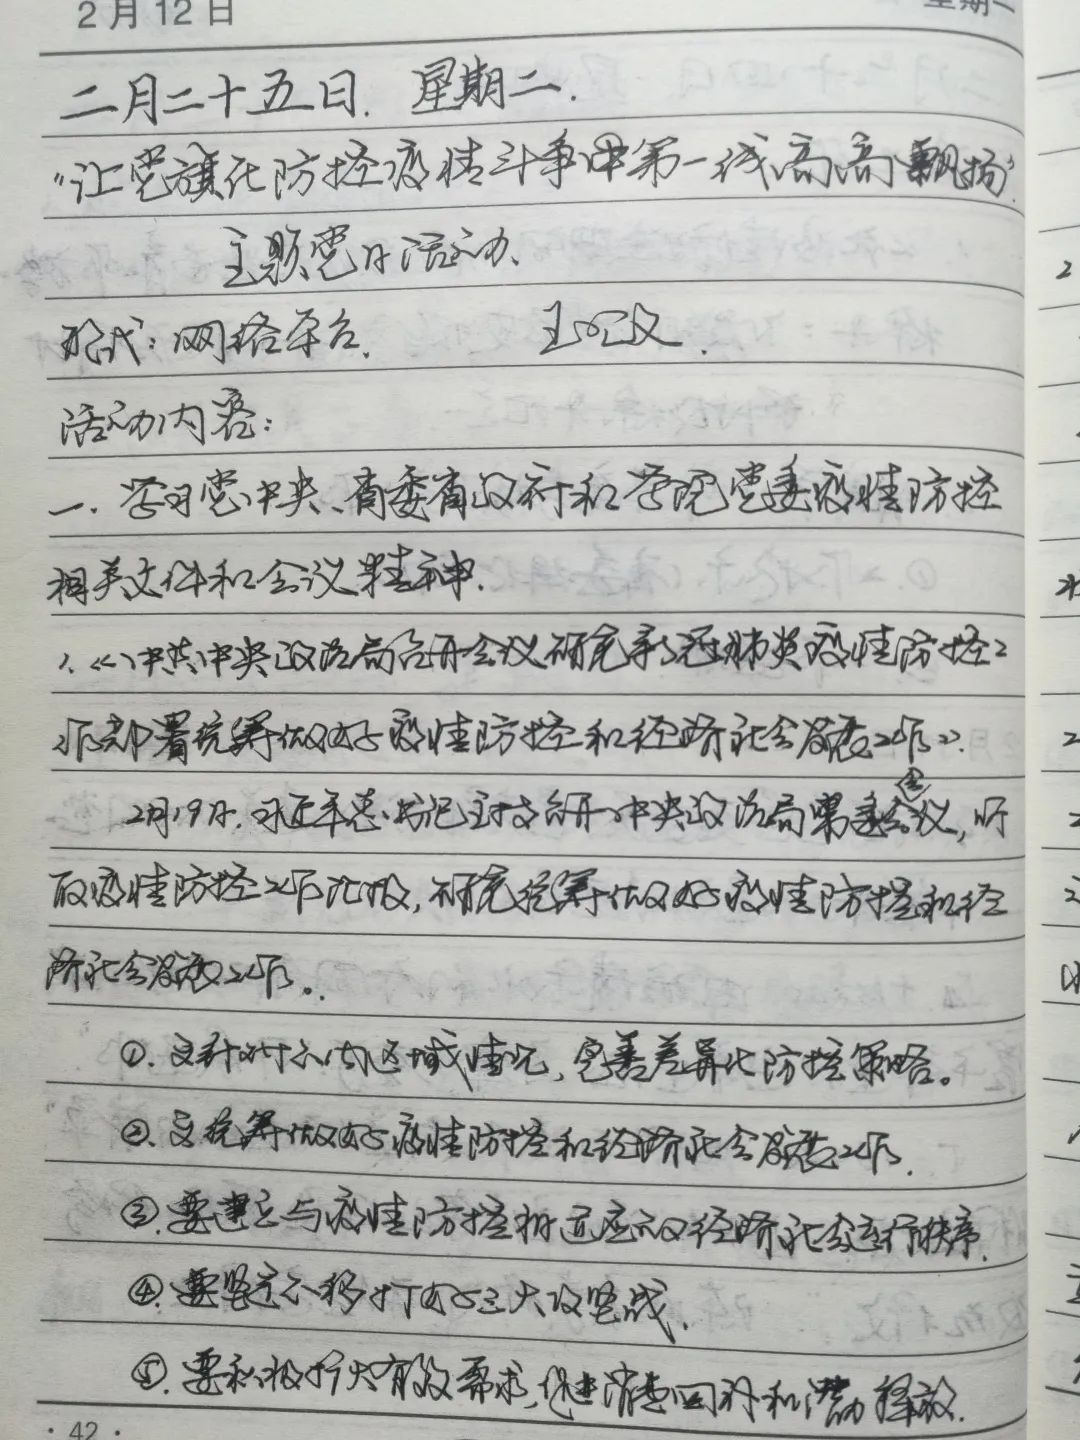 2月12日 星期一
二月二十五日. 星期二.
"让党旗在防控疫情斗争中第一线高高飘扬"
主题党日活动、
形式:网络平台.
活动内容:
一. 学习党中央、省委省政府和学院党委疫情防控
相关文件和会议精神.
1.《中共中央政治局召开会议研究新冠肺炎疫情防控工
作部署统筹做好疫情防控和经济社会发展工作》.
2月19日.习近平总书记主持召开中央政治局会议,听
取疫情防控工作汇报,研究统筹做好疫情防控和经
济社会发展工作。
①.要针对不同区域情况,完善差异化防控策略。
②.要统筹做好疫情防控和经济社会发展工作.
③.要建立与疫情防控相适应的经济社会运行秩序.
④.要坚定不移打好三大攻坚战.
⑤.要积极扩大有效需求,促进消费回补和潜力释放.
· 42 ·